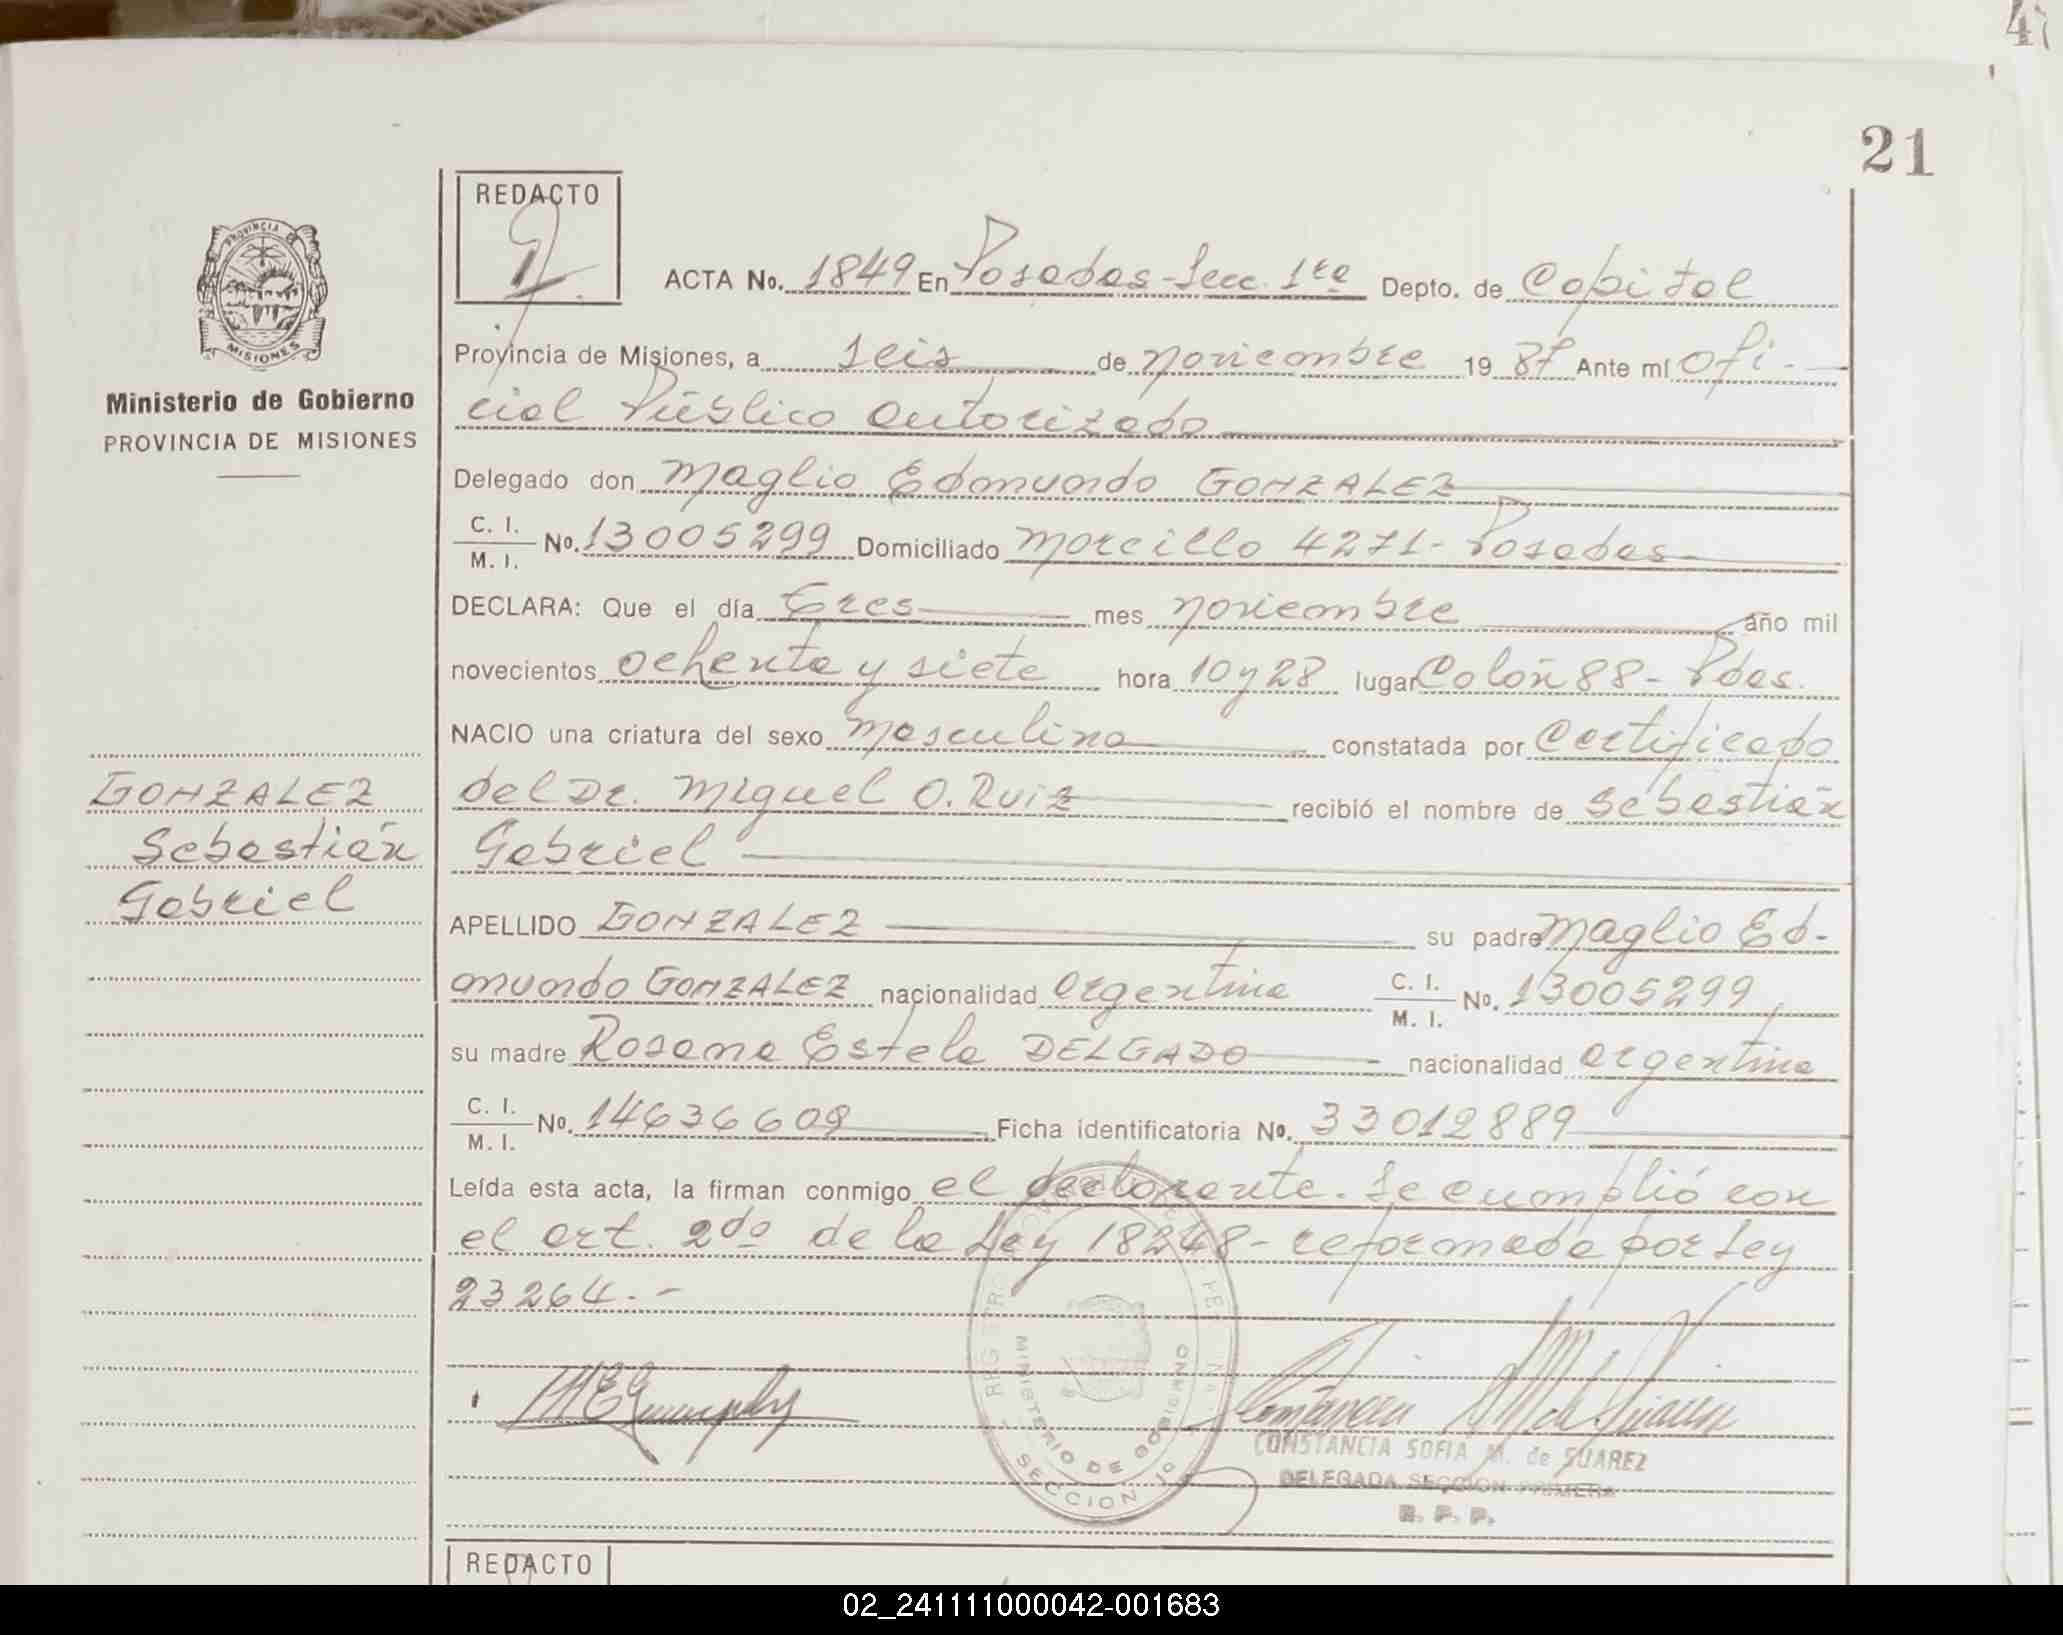 47
21
REDACTO
PROVINCIA DE
MISIONES
Ministerio de Gobierno
PROVINCIA DE MISIONES
ACTA No. 1849 En Posadas-Secc. 1ra Depto. de Capital
Provincia de Misiones, a seis de noviembre 19 87 Ante mí ofi-
cial Público autorizado
Delegado don Maglio Edmundo GONZALEZ
C. I.
M. I. No. 13005299 Domiciliado Morcillo 4271- Posadas
DECLARA: Que el día tres mes noviembre año mil
novecientos ochenta y siete hora 10 y 28 lugar Colón 88 - Pdas.
NACIO una criatura del sexo masculino constatada por Certificado
del Dr. Miguel O. Ruiz recibió el nombre de Sebastián
Gabriel
GONZALEZ
Sebastián
Gabriel
APELLIDO GONZALEZ su padre Maglio Ed-
mundo GONZALEZ nacionalidad argentina C. I. M. I. No. 13005299,
su madre Rosana Estela DELGADO nacionalidad argentina
C. I.
M. I. No. 14636608 Ficha identificatoria No. 33012889
Leída esta acta, la firman conmigo el declarante. Se cumplió con
el art. 2do de la Ley 18248- reformada por Ley
23264.-
MINISTERIO DE GOBIERNO
SECCION 1º
CONSTANCIA SOFIA M. de SUAREZ
DELEGADA SECCION PRIMERA
R. P. P.
REDACTO
02_241111000042-001683